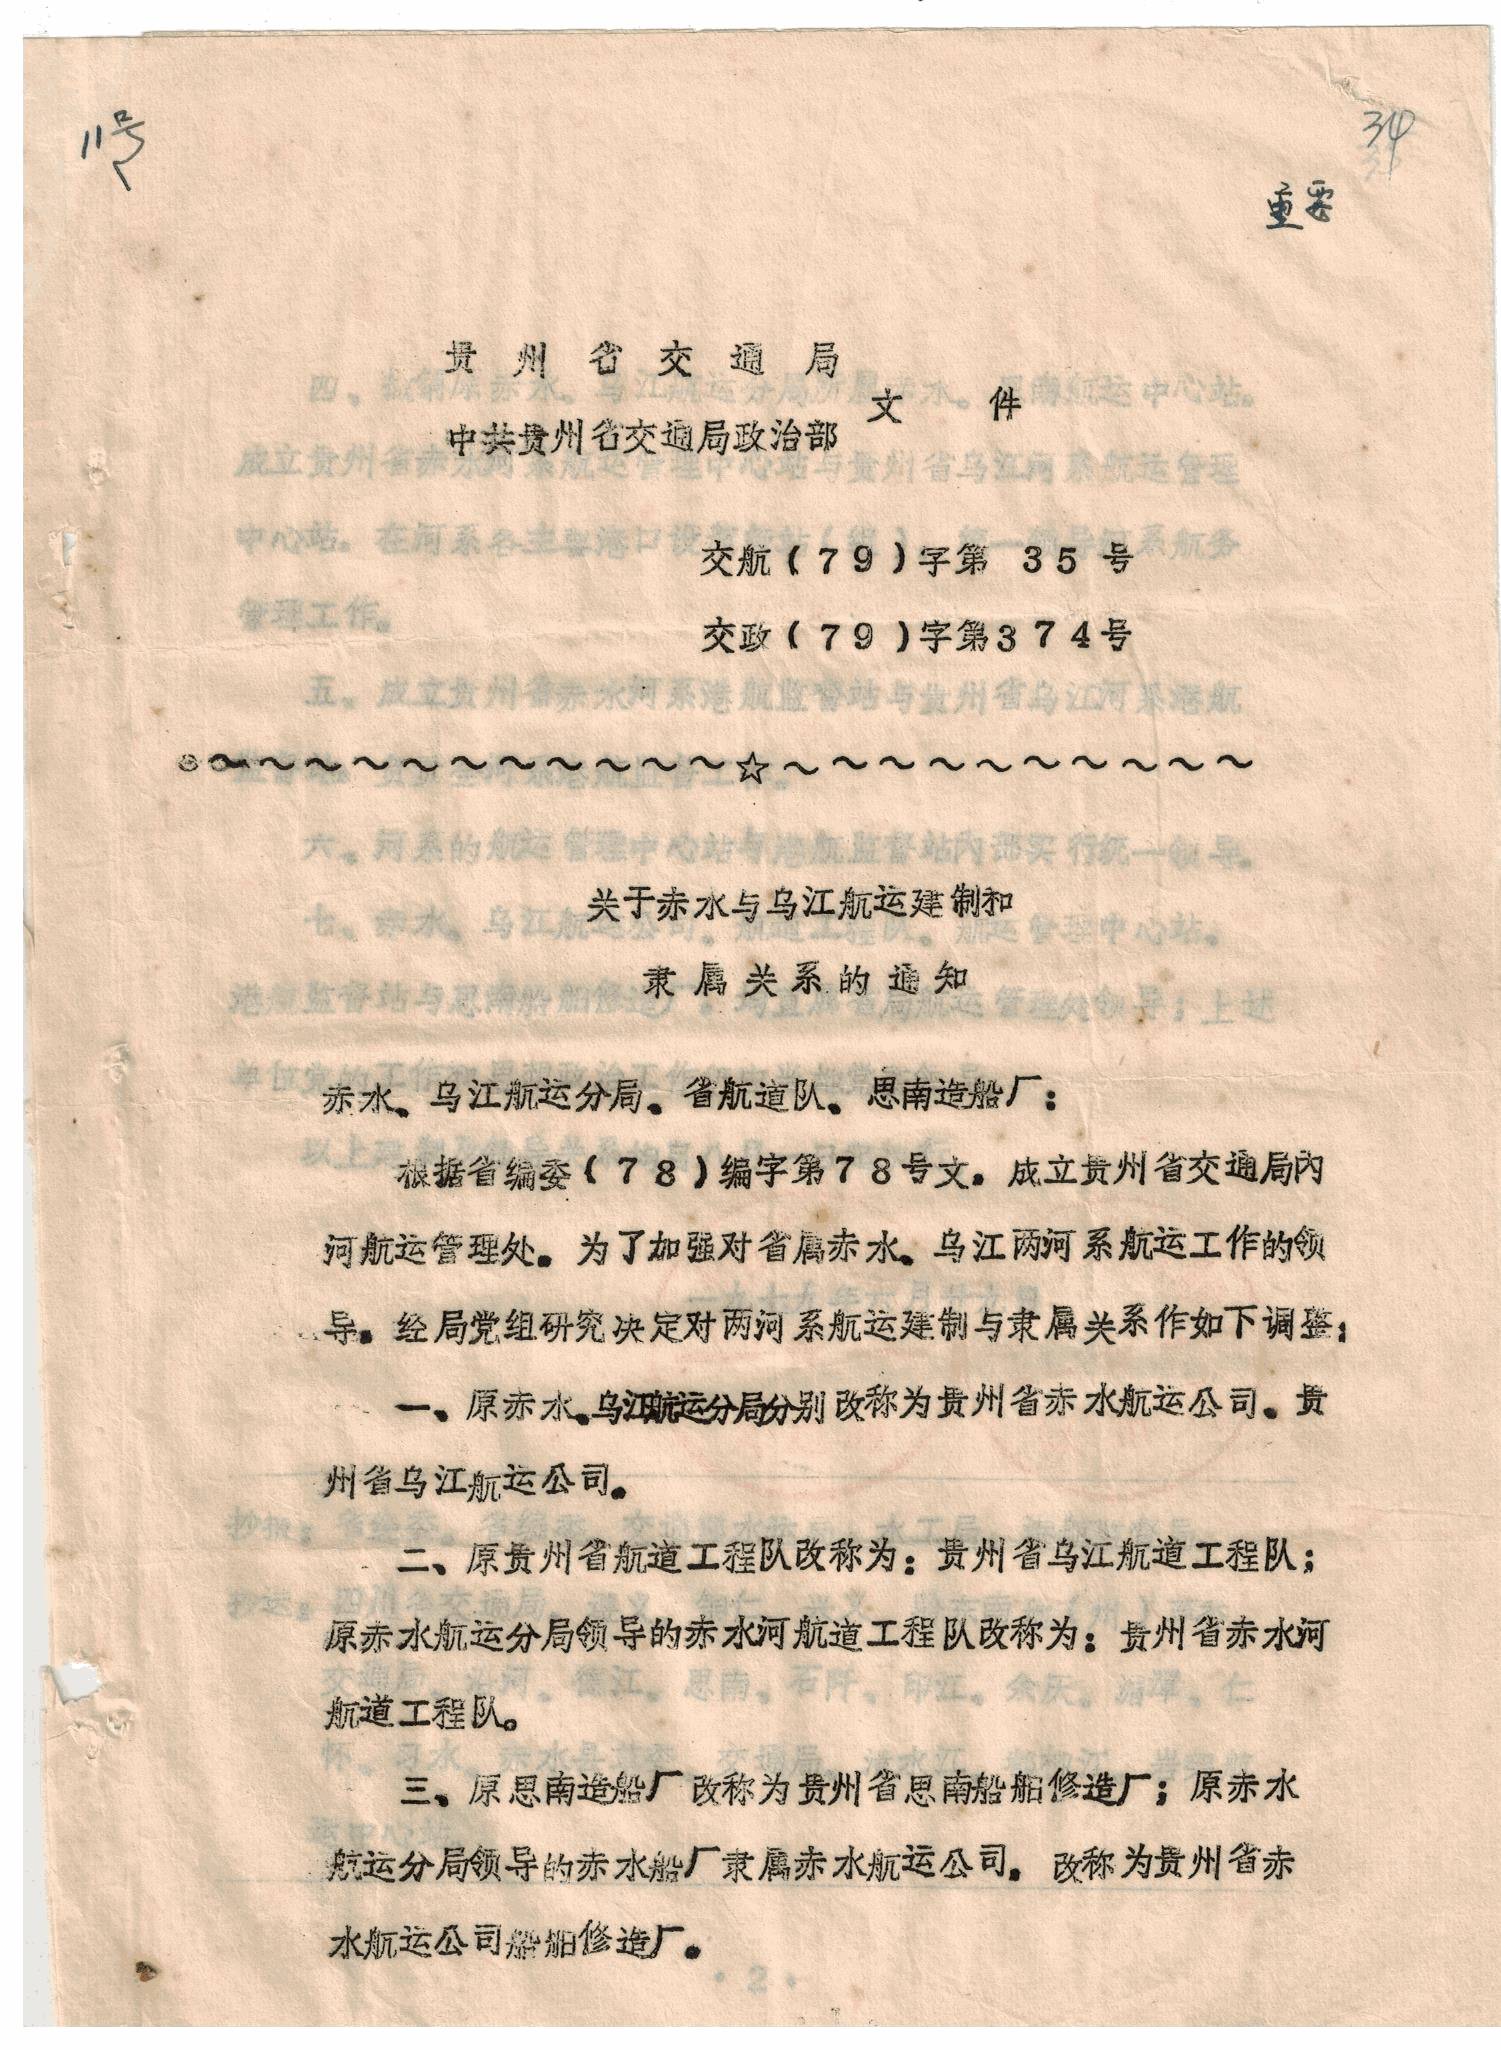 11号
34
重要
贵州省交通局
中共贵州省交通局政治部
文件
交航(79)字第 35 号
交政(79)字第374号
关于赤水与乌江航运建制和
隶属关系的通知
赤水、乌江航运分局。省航道队、思南造船厂:
根据省编委(78)编字第78号文。成立贵州省交通局内
河航运管理处。为了加强对省属赤水、乌江两河系航运工作的领
导。经局党组研究决定对两河系航运建制与隶属关系作如下调整:
一、原赤水、乌江航运分局分别改称为贵州省赤水航运公司、贵
州省乌江航运公司。
二、原贵州省航道工程队改称为:贵州省乌江航道工程队;
原赤水航运分局领导的赤水河航道工程队改称为:贵州省赤水河
航道工程队。
三、原思南造船厂改称为贵州省思南船舶修造厂;原赤水
航运分局领导的赤水船厂隶属赤水航运公司。改称为贵州省赤
水航运公司船舶修造厂。